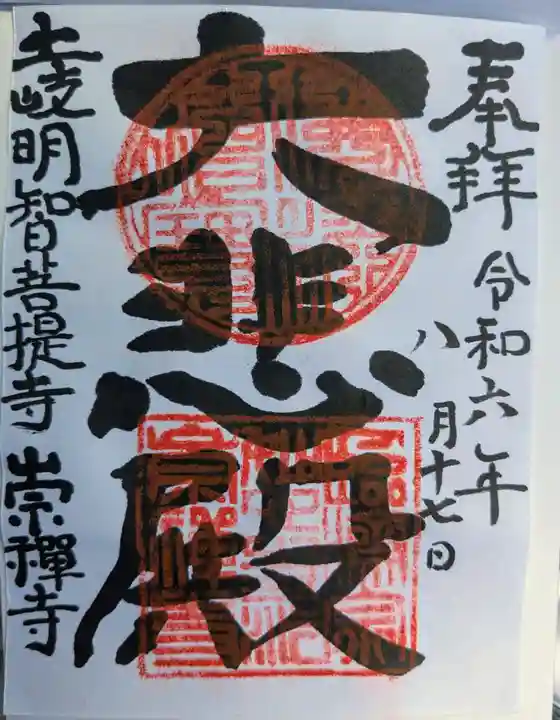 奉拜
令和六年
八月十七日
大悲殿
土岐明智菩提寺 崇禪寺